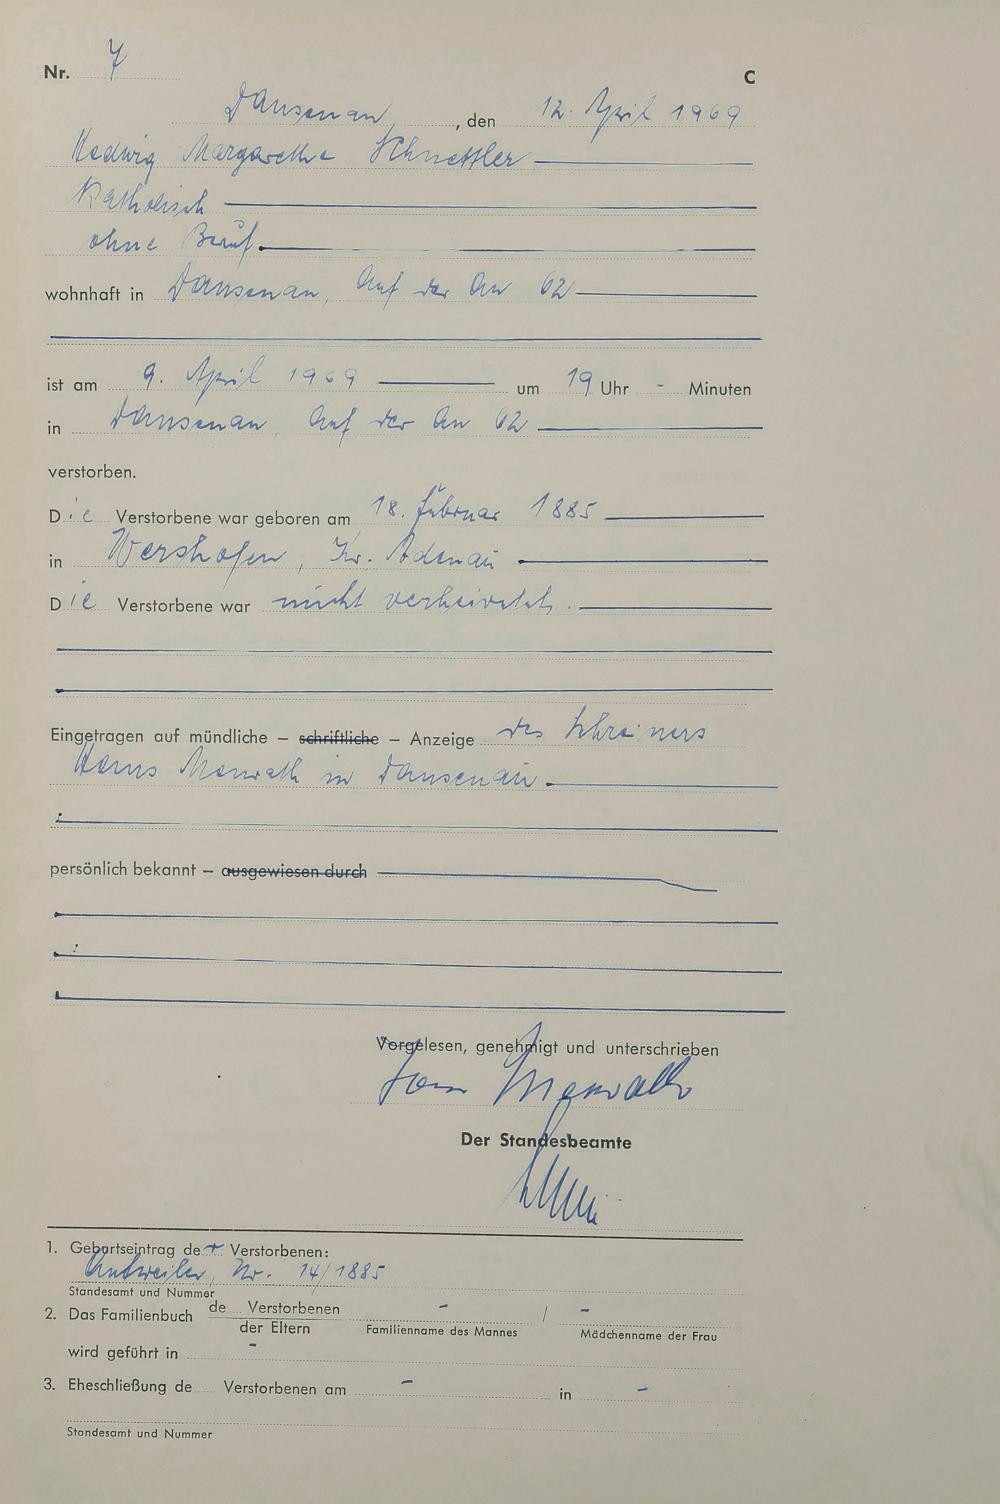 Nr. 7 C
Dausenau, den 12. April 1969
Hedwig Margarethe Schnettler
Katholisch
ohne Beruf
wohnhaft in Dausenau, Auf der Au 62
ist am 9. April 1969 um 19 Uhr - Minuten
in Dausenau, Auf der Au 62
verstorben.
Die Verstorbene war geboren am 18. Februar 1885
in Wershofen, Kr. Adenau
Die Verstorbene war nicht verheiratet.
Eingetragen auf mündliche – schriftliche – Anzeige des Schreiners
Hans in Dausenau.
persönlich bekannt – ausgewiesen durch
Vorgelesen, genehmigt und unterschrieben
Der Standesbeamte
1. Geburtseintrag der Verstorbenen:
Antweiler, Nr. 14/1885
Standesamt und Nummer
2. Das Familienbuch de Verstorbenen - / -
der Eltern Familienname des Mannes Mädchenname der Frau
wird geführt in -
3. Eheschließung de Verstorbenen am - in -
Standesamt und Nummer